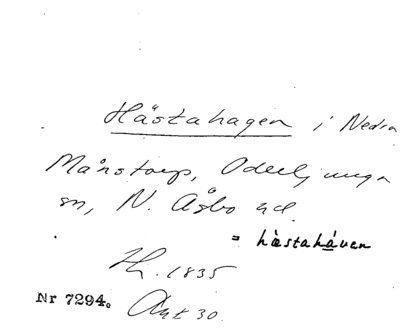 Hästahagen i Nedra
Månstorp, Oderljunga
sn, N. Åsbo hd.
= hästahåven
H. 1835
Nr 7294. Ant 30.